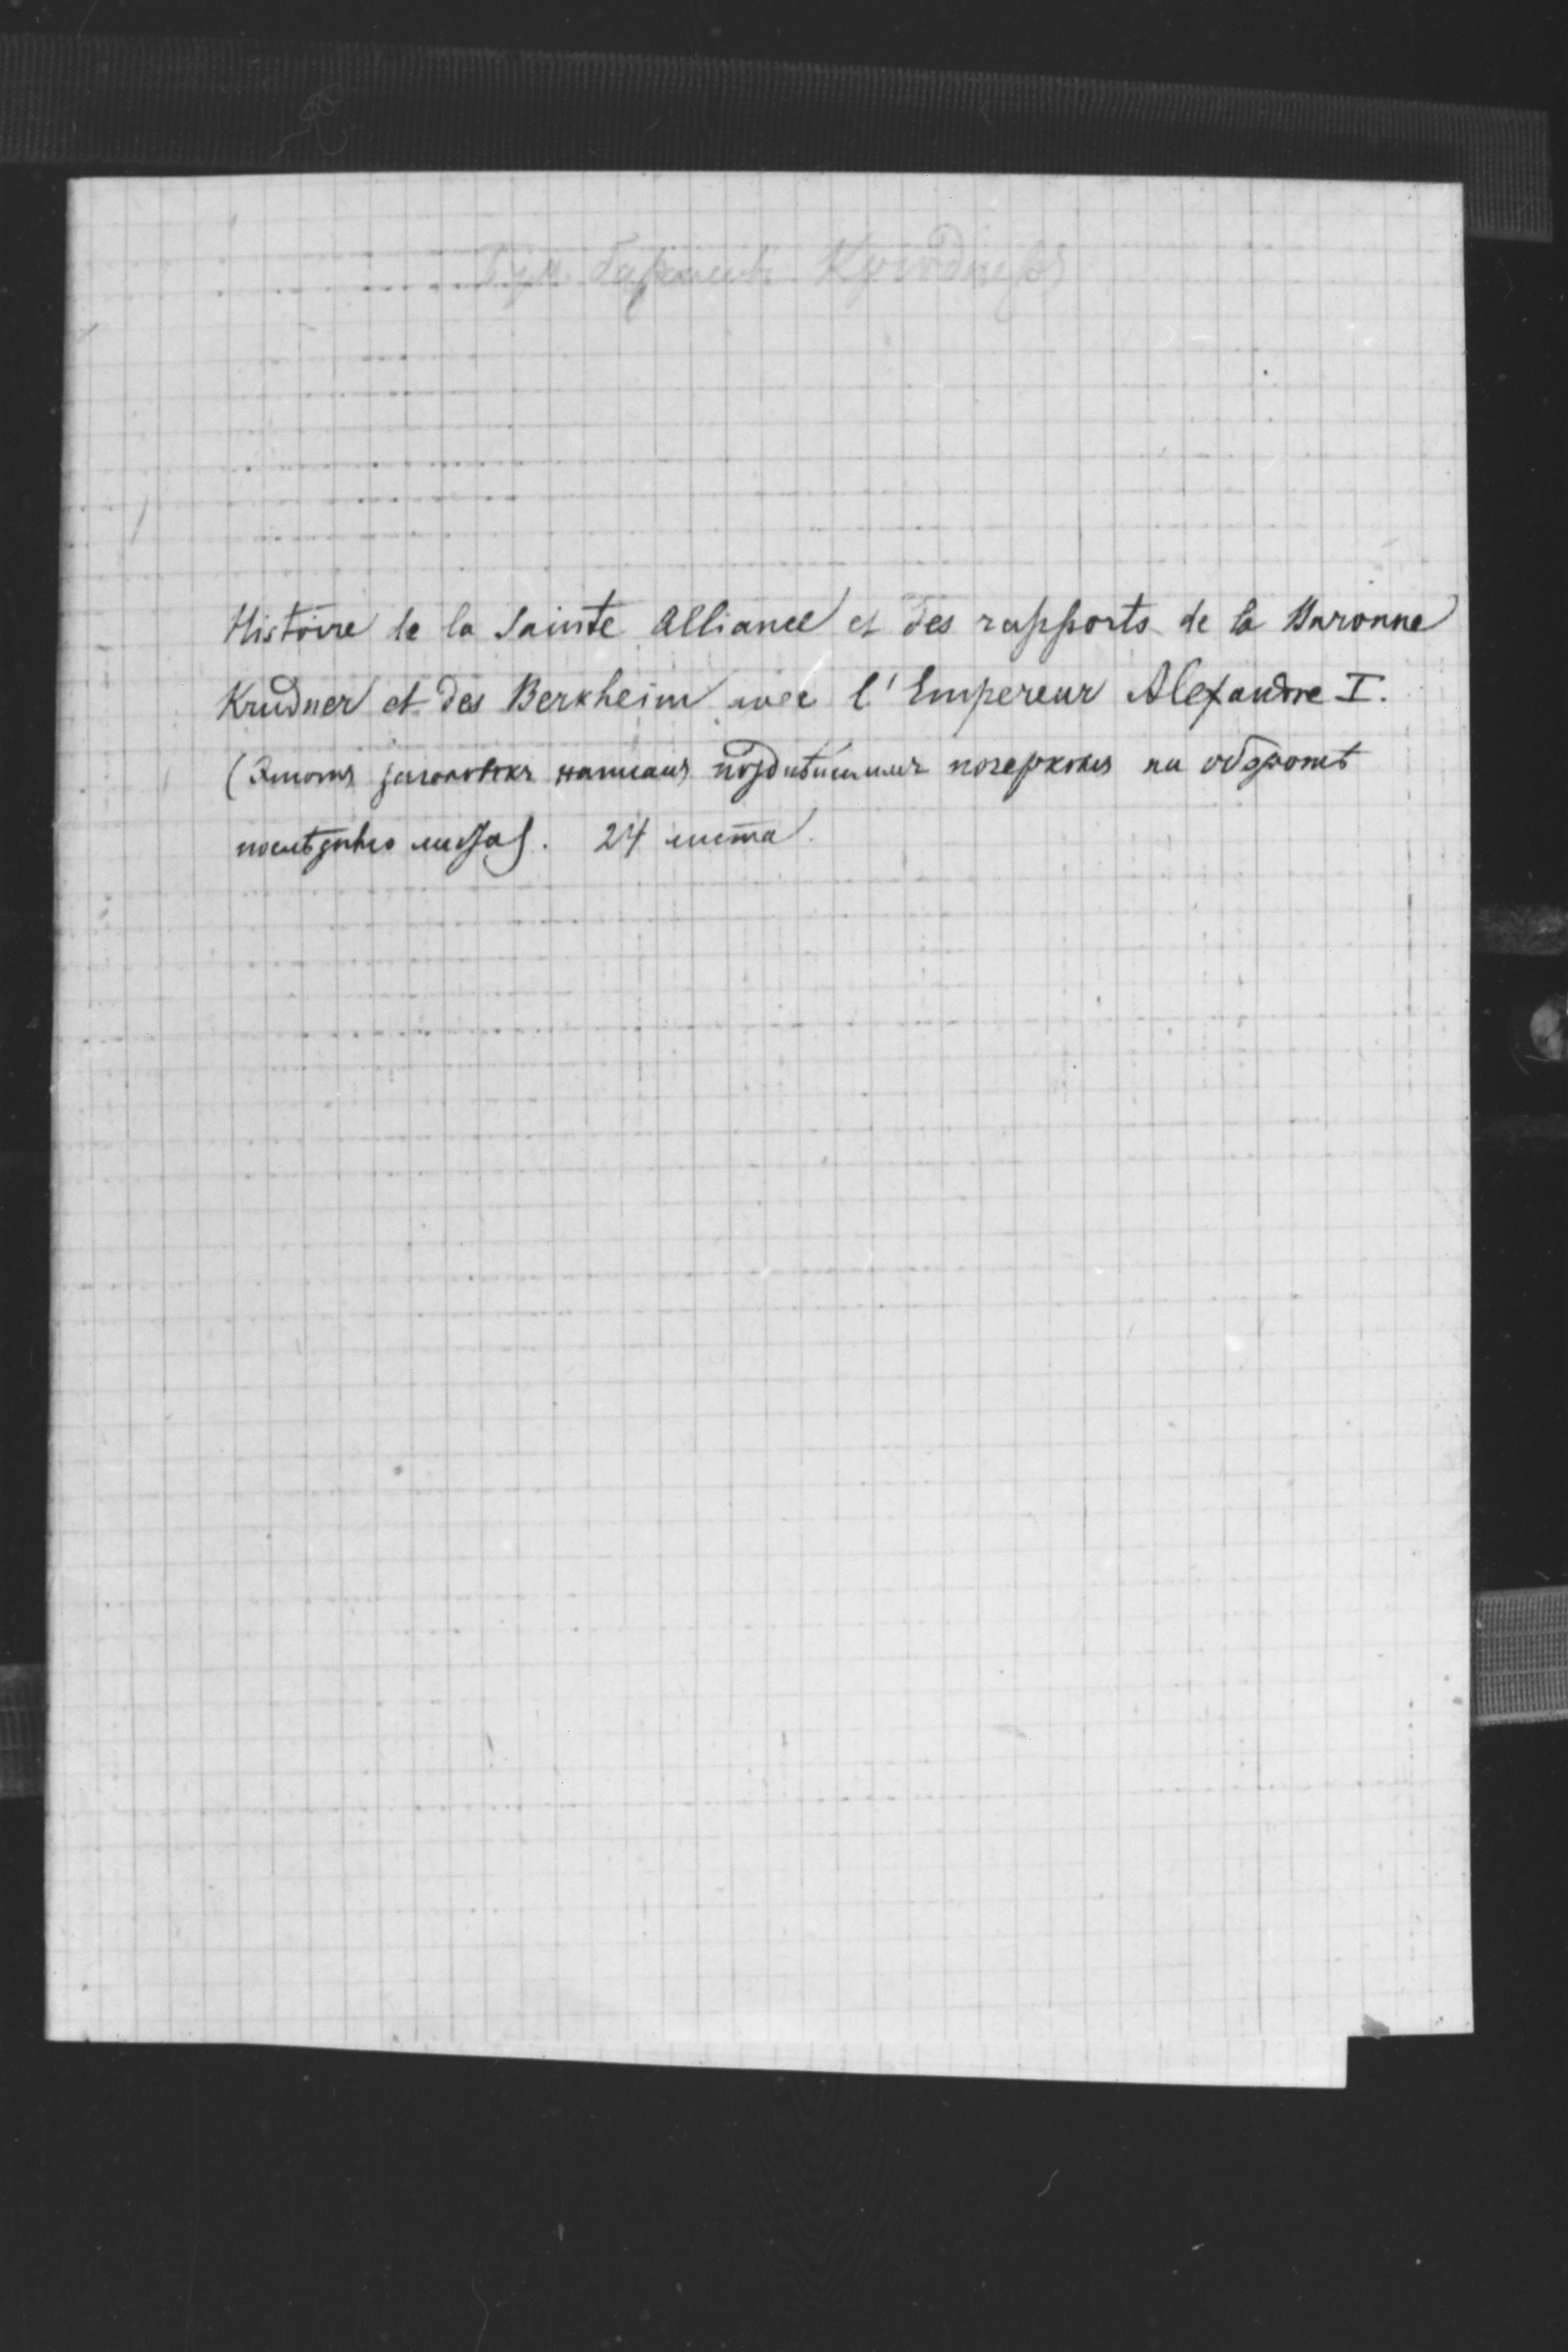 Бум. баронессы Крюднеръ
Histoire de la Sainte Alliance et des rapports de la Baronne
Krudner et des Berkheim avec l'Empereur Alexandre I.
(Этотъ заголовокъ написанъ позднѣйшимъ почеркомъ на оборотѣ
послѣдняго листа). 24 листа.